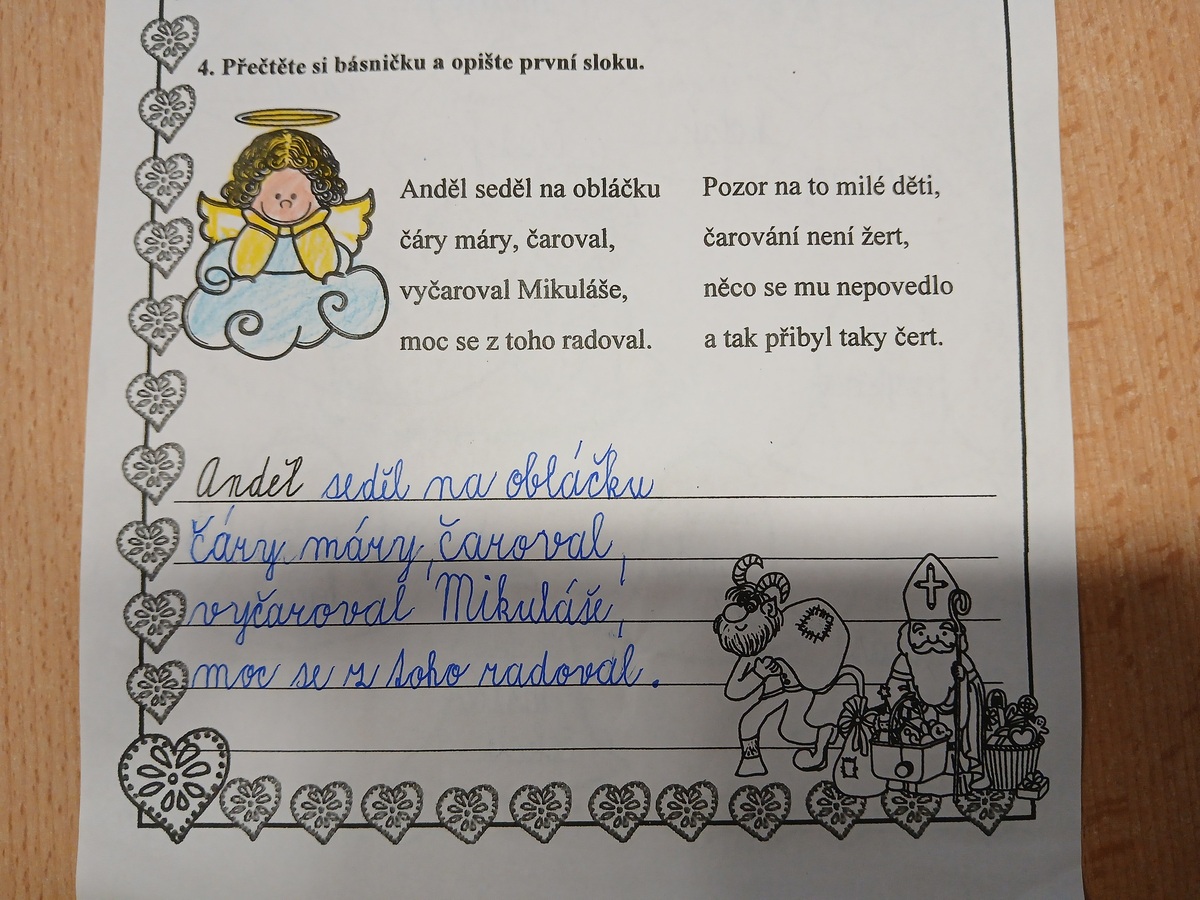 4. Přečtěte si básničku a opište první sloku.
Anděl seděl na obláčku
čáry máry, čaroval,
vyčaroval Mikuláše,
moc se z toho radoval.
Pozor na to milé děti,
čarování není žert,
něco se mu nepovedlo
a tak přibyl taky čert.
Anděl seděl na obláčku
čáry máry, čaroval,
vyčaroval Mikuláše,
moc se z toho radoval.